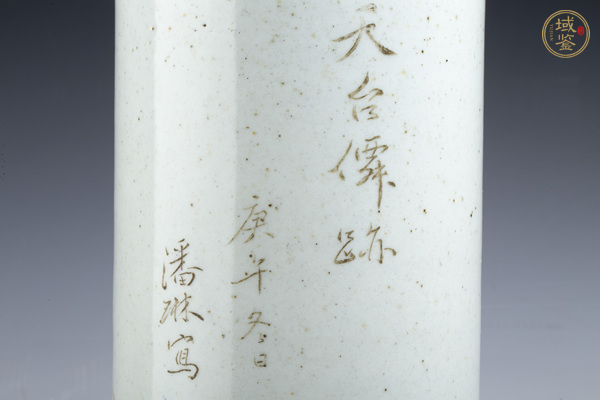 天台僊跡
庚年冬日
潘琳寫
域鉴